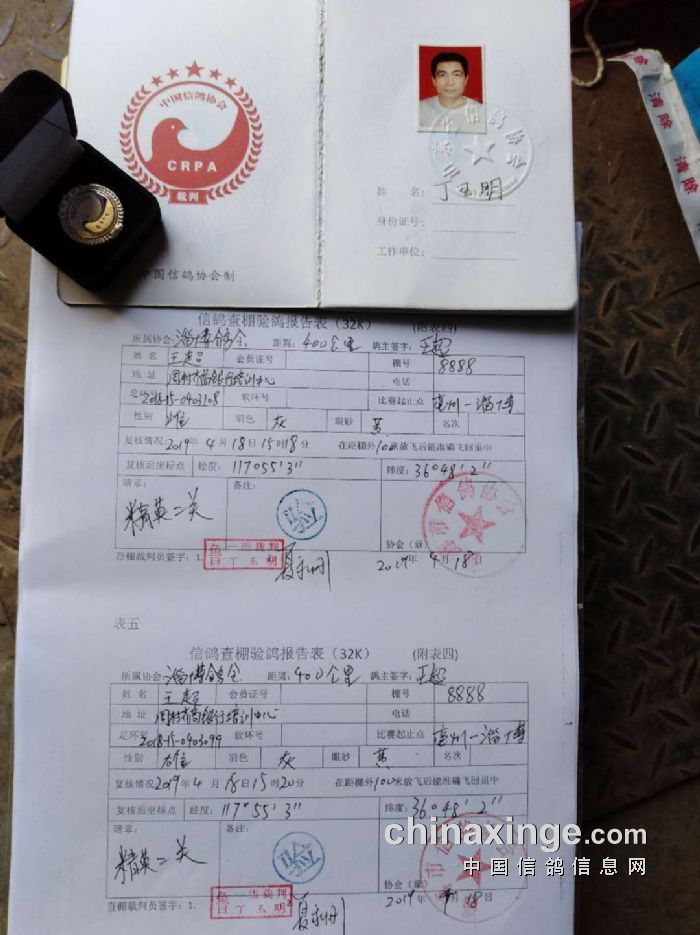 中国信鸽协会
CRPA
裁判
中国信鸽协会制
姓 名：丁玉明
身份证号：
工作单位：
清除
清除
信鸽查棚验鸽报告表（32K） （附表四）
所属协会：淄博鸽会 距离：400公里 鸽主签字：王超
姓 名 王超 会员证号 棚号 8888
地 址 周村商银行培训中心 电话
足环号 2018-15-0403108 软环号 比赛起止点 —淄博
性别 雄 羽色 灰 眼砂 黄 名次
复核情况：2019年4月18日15时18分 在距棚外100米放飞后能准确飞回巢中
复核后坐标点 经度：117°55′3″ 纬度：36°48′2″
暗章： 备注：
精英二关 验
协会（章）
查棚裁判员签字：1.
2019年4月18日
表五
信鸽查棚验鸽报告表（32K） （附表四）
所属协会：淄博鸽会 距离：400公里 鸽主签字：王超
姓 名 王超 会员证号 棚号 8888
地 址 周村商银行培训中心 电话
足环号 2018-15-0403099 软环号 比赛起止点 —淄博
性别 雄 羽色 灰 眼砂 黄 名次
复核情况：2019年4月18日15时20分 在距棚外100米放飞后能准确飞回巢中
复核后坐标点 经度：117°55′3″ 纬度：36°48′2″
暗章： 备注：
精英二关 验
协会（章）
查棚裁判员签字：1.
2019年4月18日
chinaxinge.com
中国信鸽信息网